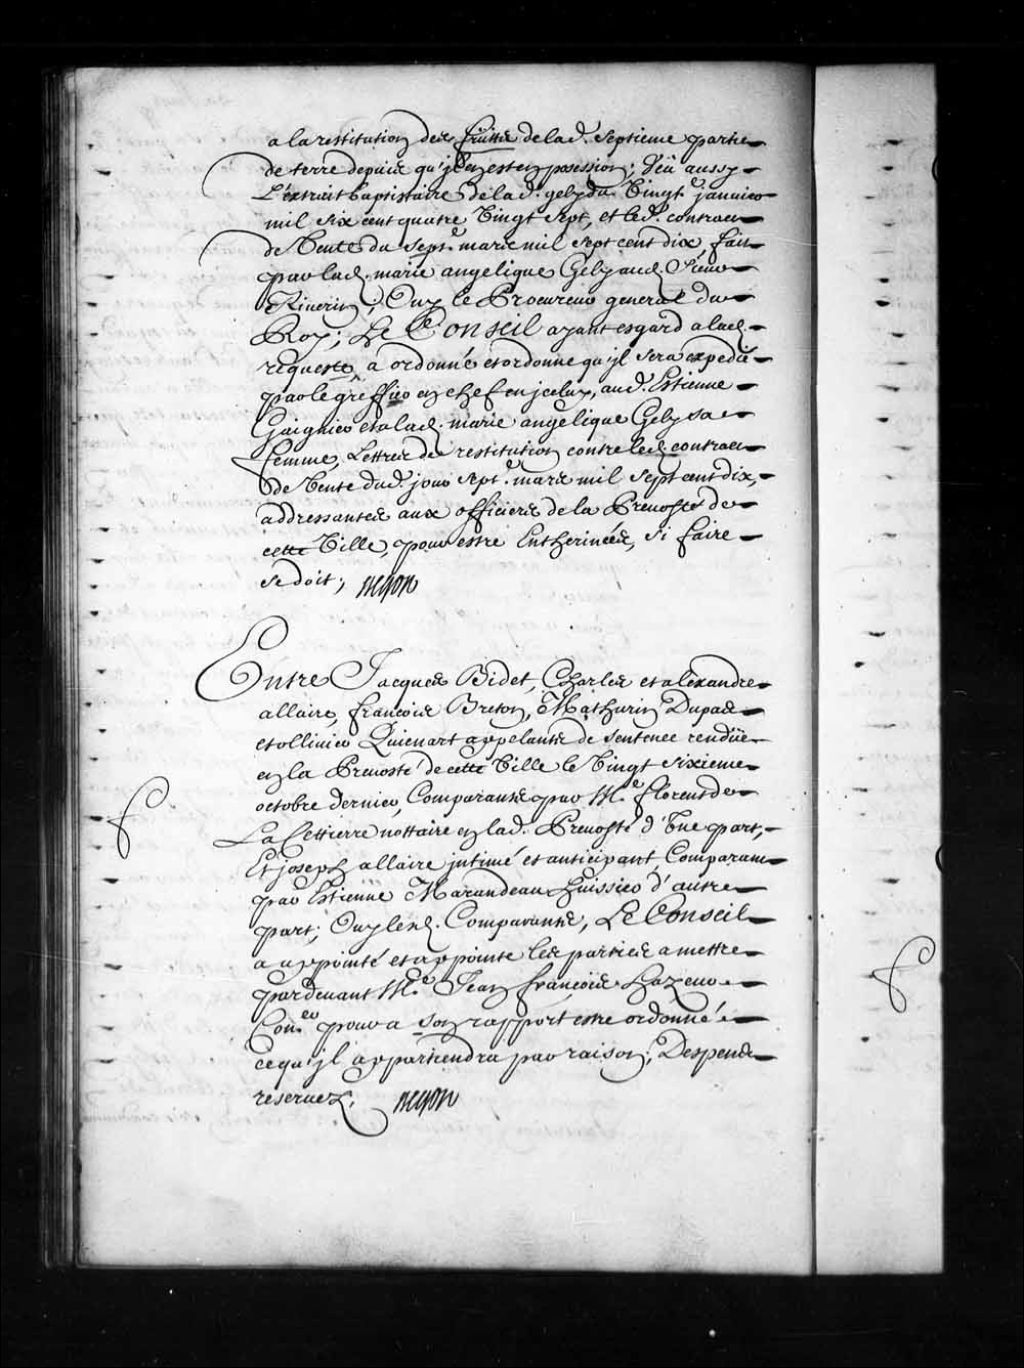 a la restitution des fruits de lad. septieme partie
de terre depuis qu'jl en est en possession; Veü aussy
L'extrait baptistaire de lad. gely du Vingt janvier
mil six cent quatre Vingt sept, et led. contract
de Vente du sept.e mars mil sept cent dix, fait
par lad. marie angelique Gely aud. Sieur
Riverin; Ouy le Procureur general du
Roy; Le Conseil ayant esgard a lad.
requeste, a ordonné et ordonne qu'jl sera expedié
par le greffier en chef en jceluy, aud. Estienne
Gaignier et a lad. marie angelique Gely sa
femme, Lettres de restitution contre led. contract
de Vente dud. jour sept.e mars mil sept cent dix,
addressantes aux officiers de la Prevosté de
cette Ville, pour estre Entherinées, si faire
se doit;
Entre Jacques Bidet, Charles et alexandre
allaire, francois Breton, Mathurin Dupas
et ollivier Quienart appelants de sentence rendüe
en la Prevosté de cette Ville le Vingt sixieme
octobre dernier, Comparants par M.e florent de
La Cettierre nottaire en lad. Prevosté d'Une part,
Et joseph allaire jntimé et anticipant Comparant
par Estienne Marandeau huissier d'autre
part; Ouy lesd. Comparants, Le Conseil
a appointé et appointe les parties a mettre
pardevant M.e Jean françois hazeur
Con.er pour a son rapport estre ordonné
ce qu'jl appartiendra par raison; Despens
reservez,